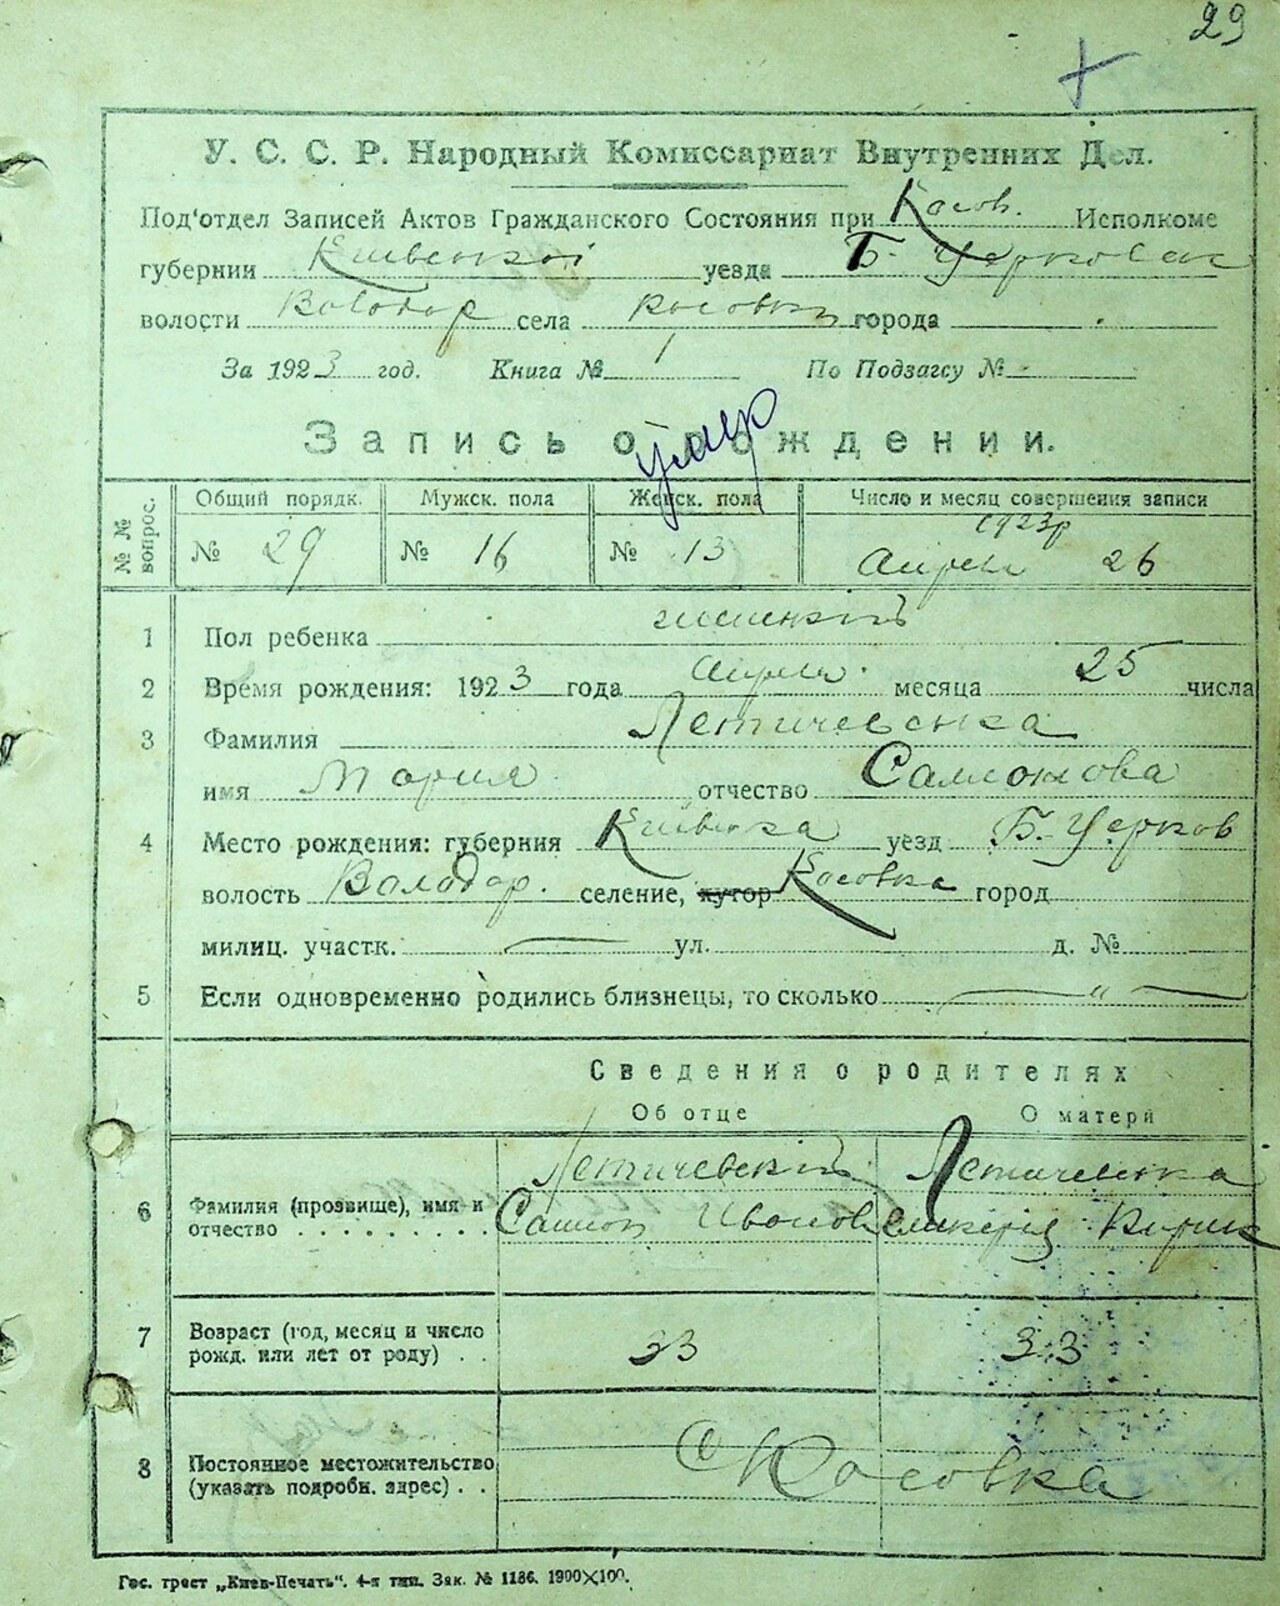 29
У. С. С. Р. Народный Комиссариат Внутренних Дел.
Под'отдел Записей Актов Гражданского Состояния при Косов. Исполкоме
губернии Киівської уезда Б. Церковск
волости Володар села Косовки города
За 1923 год. Книга № 1 По Подзагсу №
Запись о рождении.
умер
№ № вопрос. Общий порядк. Мужск. пола Женск. пола Число и месяц совершения записи
1923р
№ 29 № 16 № 13 Апреля 26
1 Пол ребенка
2 Время рождения: 1923 года Апреля месяца 25 числа
3 Фамилия Летичевська
имя Мария отчество Самсонова
4 Место рождения: губерния Киівська уезд Б.-Церков
волость Володар. селение, хутор Косовка город
милиц. участк. ул. д. №
5 Если одновременно родились близнецы, то сколько „
Сведения о родителях
Об отце О матери
Летичевский Летичевска
6 Фамилия (прозвище), имя и отчество Самсон Иванов
7 Возраст (год, месяц и число рожд. или лет от роду) 33 33
8 Постоянное местожительство (указать подробн. адрес) С Косовка
Гос. трест „Киев-Печать“. 4-я тип. Зак. № 1186. 1900×100.